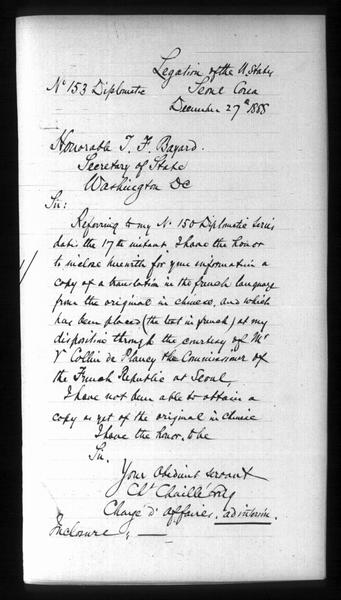 Legation of the U. States
Nº 153 Diplomatic Seoul Corea
December 27th 1888
Honorable T. F. Bayard.
Secretary of State
Washington DC
Sir:
Referring to my Nº 150 Diplomatic Series
date the 17th instant, I have the honor
to inclose herewith for your information a
copy of a translation in the french language
from the original in chinese, and which
has been placed (the text in french) at my
disposition through the courtesy of Mr
V Collin de Plancy the Commissioner of
the French Republic at Seoul,
I have not been able to obtain a
copy as yet of the original in chinese
I have the honor, to be
Sir.
Your Obedient servant
Ch Chaillé Long
Chargé d'Affaires, ad interim.
Inclosure,